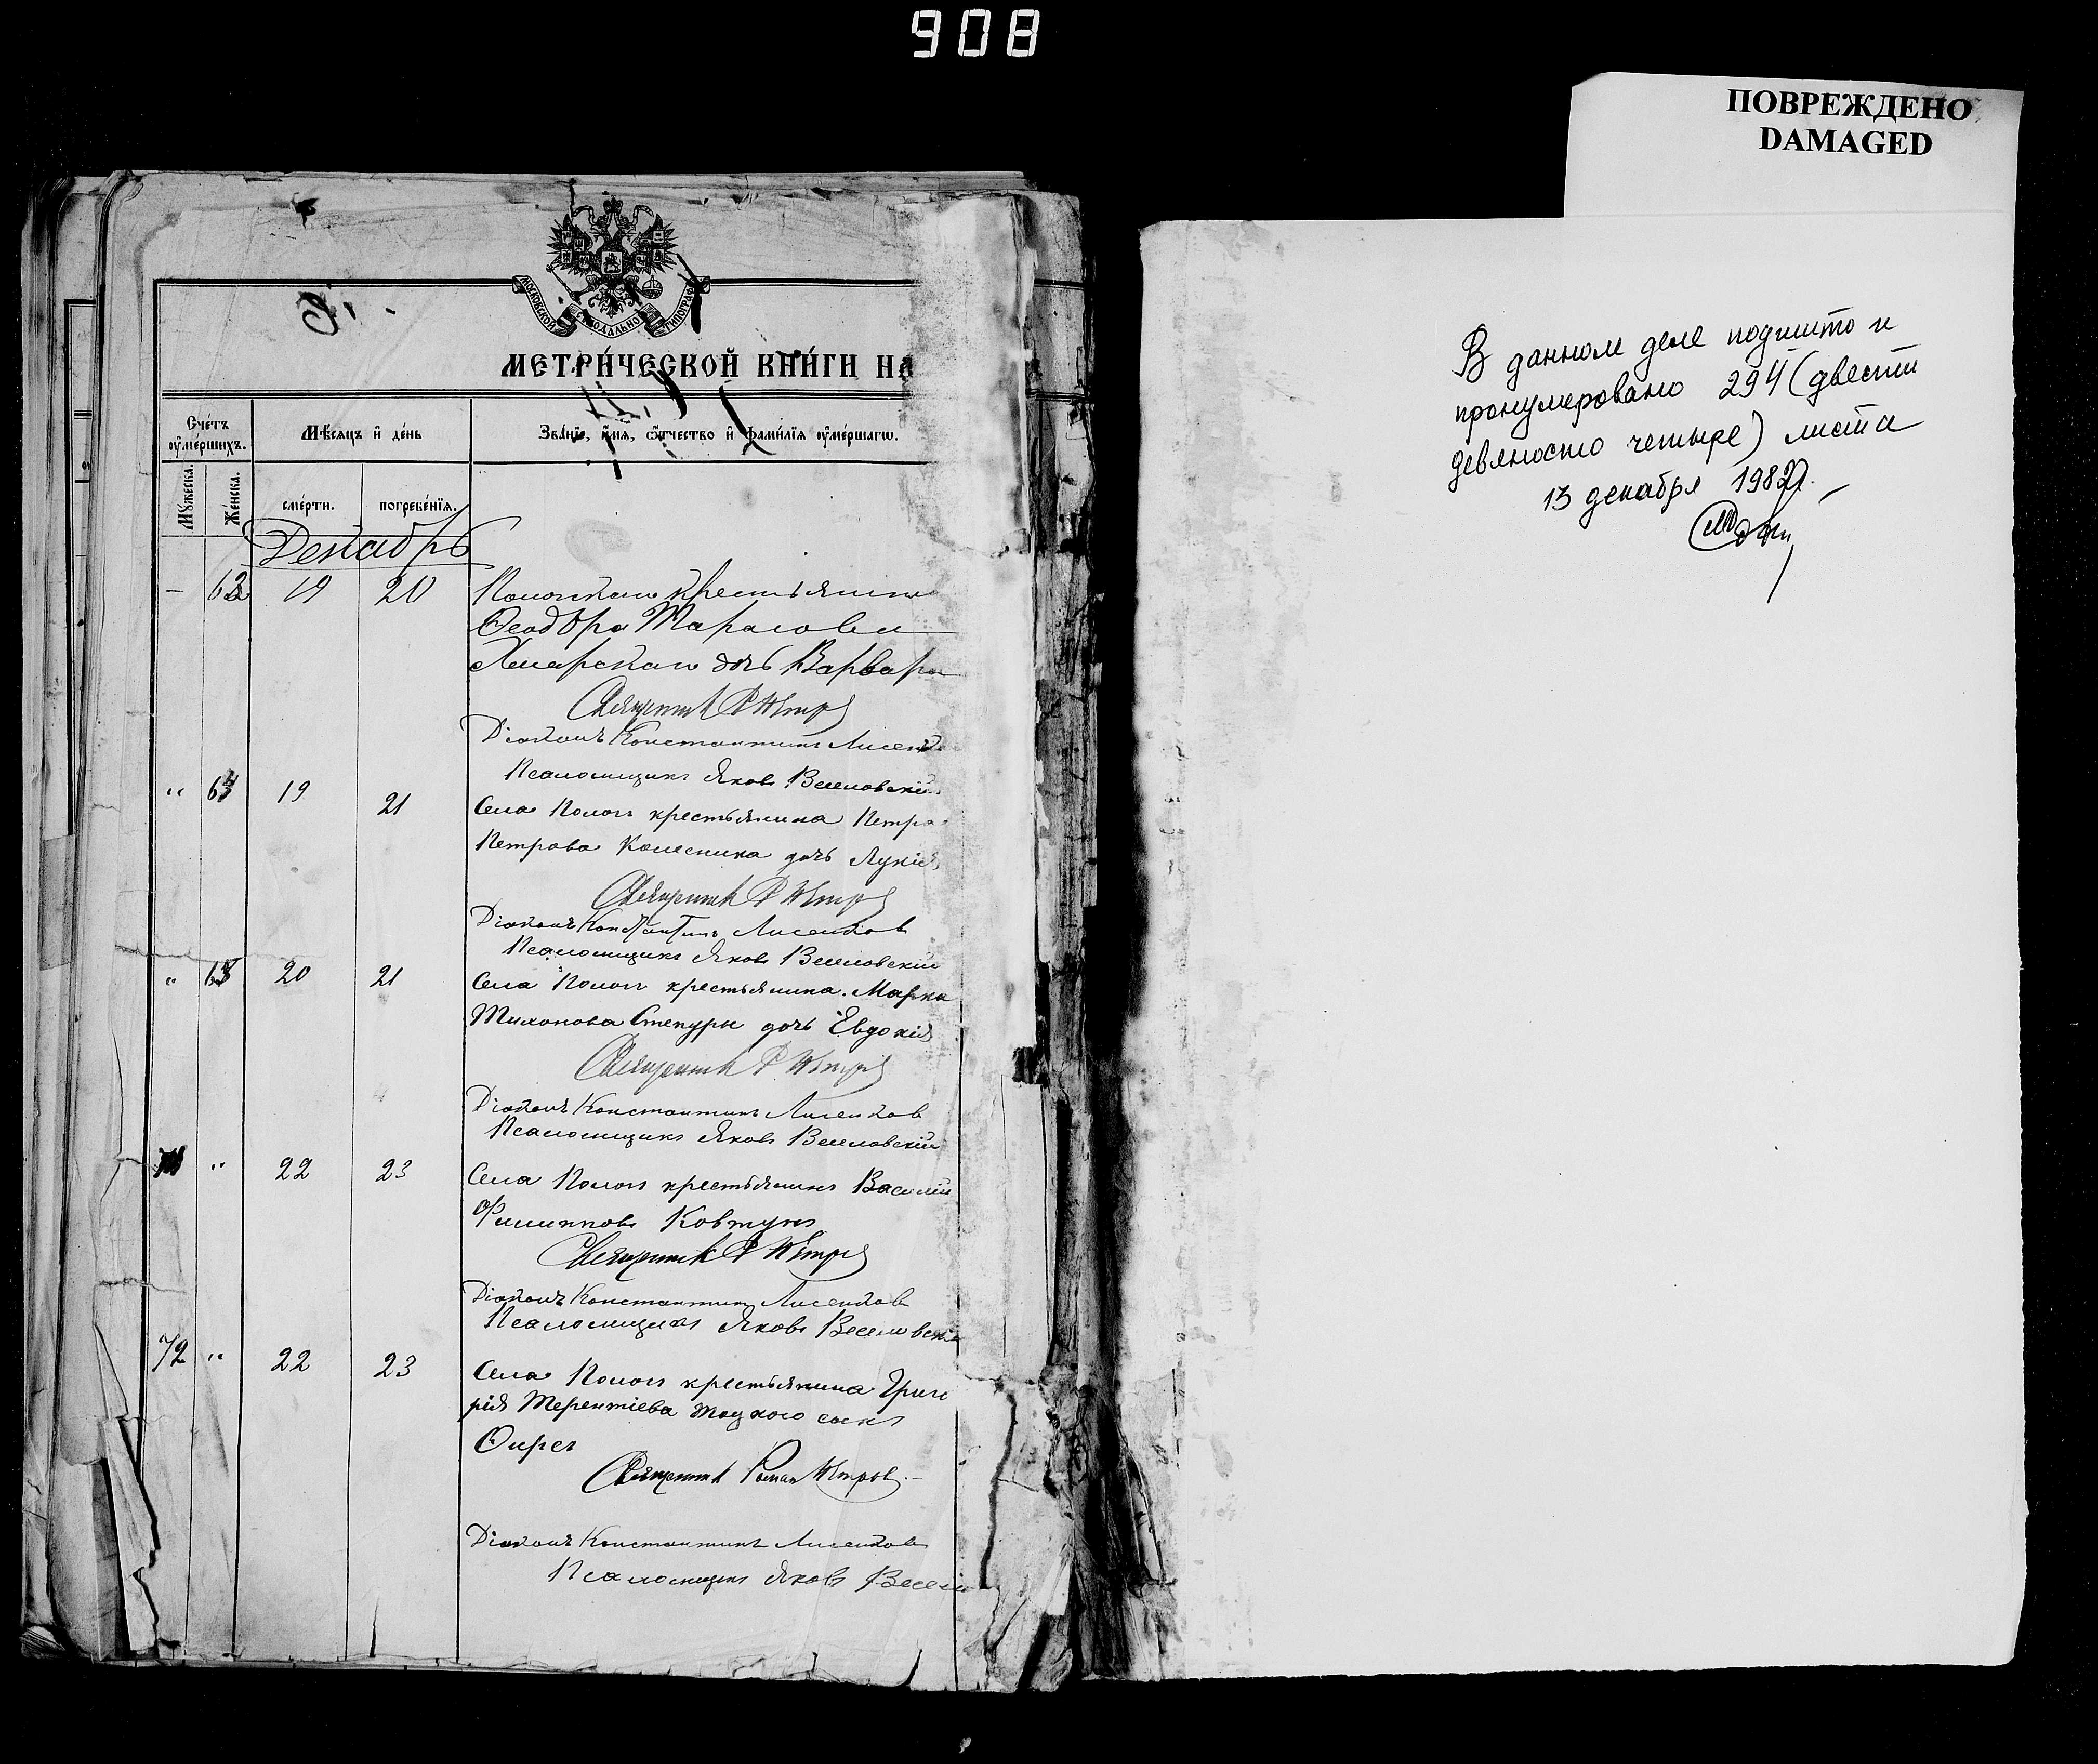 908
ПОВРЕЖДЕНО
DAMAGED
МОСКОВСКОЙ СѴНОДАЛЬНО ТИПОГРАФ
МЕТРИ́ЧЕСКОЙ КНИ́ГИ НА
Сче́тъ оу҆ме́ршихъ.
Мѣ́сяцъ и҆ де́нь
Зва́нїе, и҆́мя, ѻ҆́тчество и҆ фами́лїя оу҆ме́ршагѡ.
Мꙋ́жеска.
Же́нска.
сме́рти.
погребе́нїя.
Декабрь
— 63 19 20 Пологскаго крестьянина
Ѳеодора Тарасова
Хмарскаго дочь Варвара
Священник Р Петр
Діаконъ Константинъ Лисенков
Псаломщикъ Яковъ Веселовскій
" 64 19 21 Села Полог крестьянина Петра
Петрова Колесника дочь Лукія
Священник Р Петр
Діаконъ Константинъ Лисенков
Псаломщикъ Яковъ Веселовскій
" 65 20 21 Села Полог крестьянина Марка
Тихонова Степуры дочь Евдокія
Священник Р Петр
Діаконъ Константинъ Лисенков
Псаломщикъ Яковъ Веселовскій
" 22 23 Села Полог крестьянинъ Василій
Филипповъ Ковтунъ
Священник Р Петр
Діаконъ Константинъ Лисенков
Псаломщикъ Яковъ Веселовскі
72 " 22 23 Села Полог крестьянина Григо
рія Терентіева сынъ
Священник Роман Петров.
Діаконъ Константинъ Лисенков
Псаломщикъ Яковъ Весел
В данном деле подшито и
пронумеровано 294 (двести
девяносто четыре) листа
13 декабря 1982г.